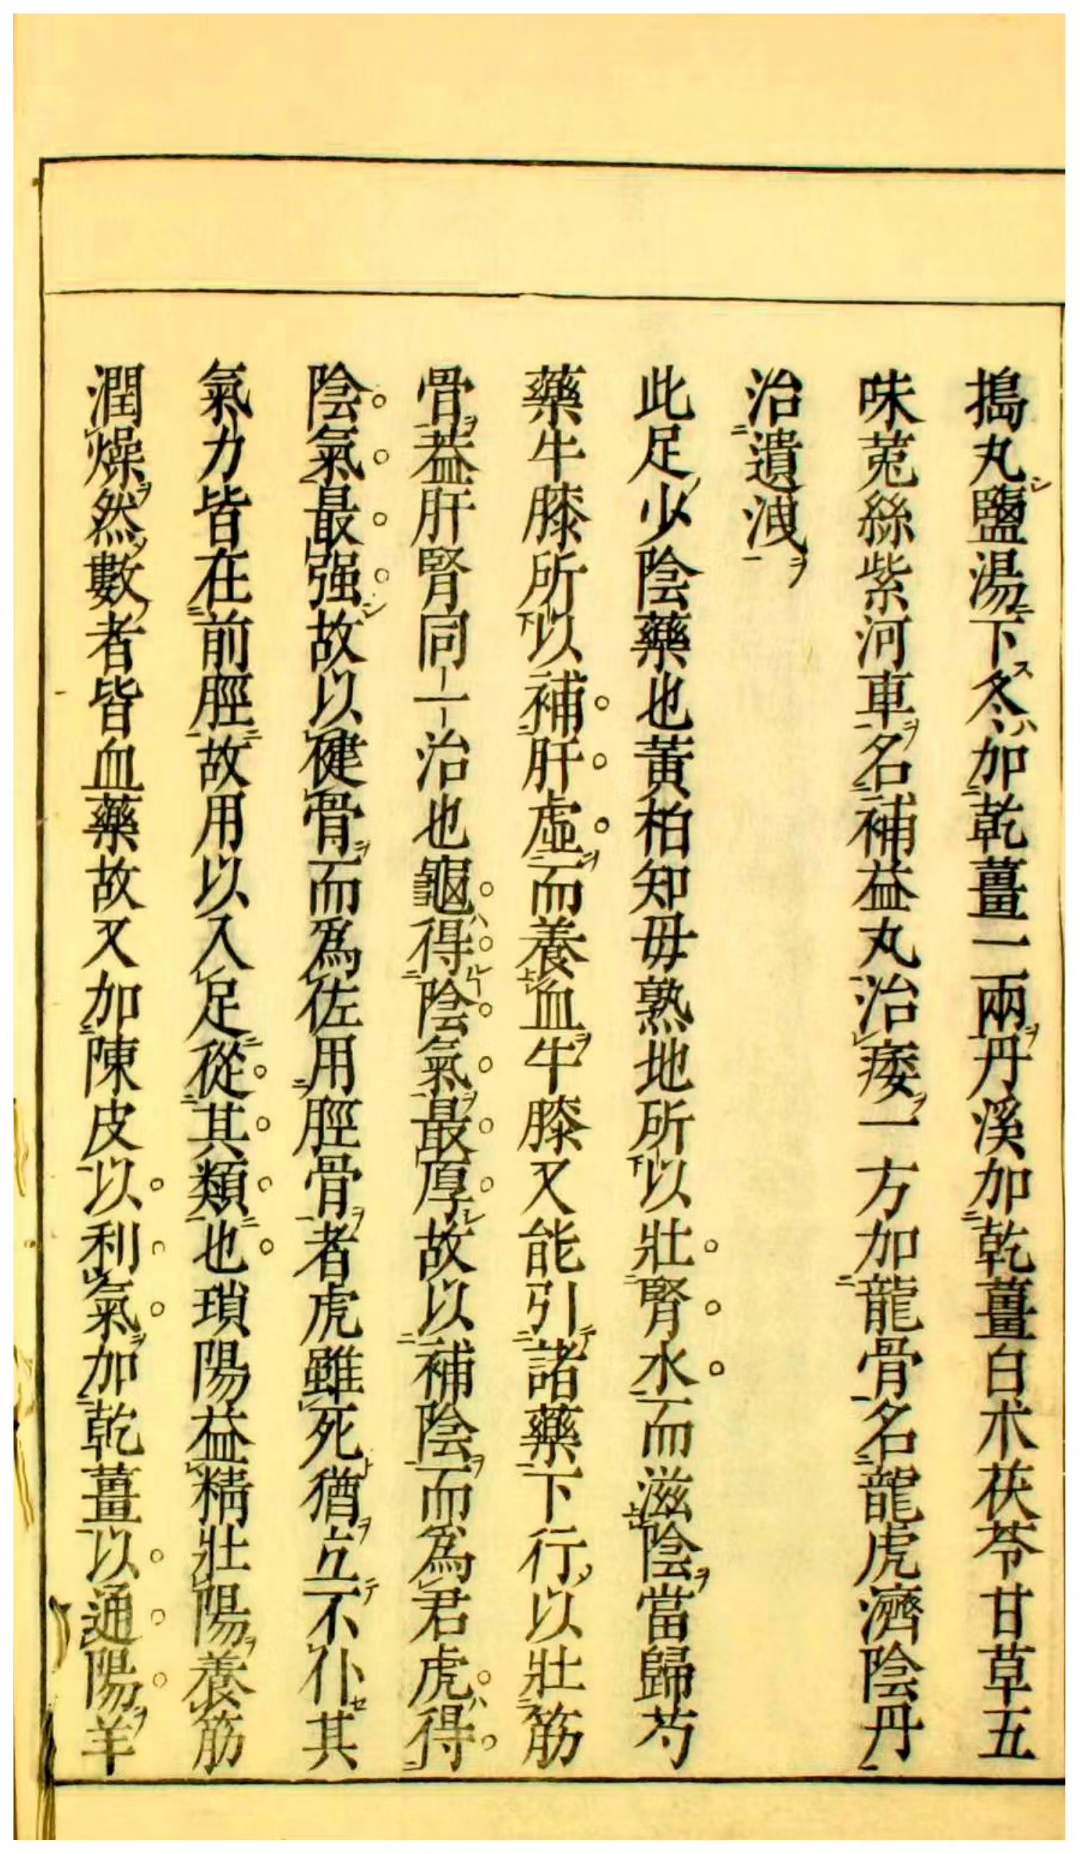 搗丸鹽湯下冬加乾薑一兩丹溪加乾薑白朮茯苓甘草五
味菟絲紫河車名補益丸治痿一方加龍骨名龍虎濟陰丹
治遺洩
此足少陰藥也黃柏知母熟地所以壯腎水而滋陰當歸芍
藥牛膝所以補肝虛而養血牛膝又能引諸藥下行以壯筋
骨葢肝腎同一治也龜得陰氣最厚故以補陰而為君虎得
陰氣最强故以健骨而為佐用脛骨者虎雖死猶立不仆其
氣力皆在前脛故用以入足從其類也瑣陽益精壯陽養筋
潤燥然數者皆血藥故又加陳皮以利氣加乾薑以通陽羊